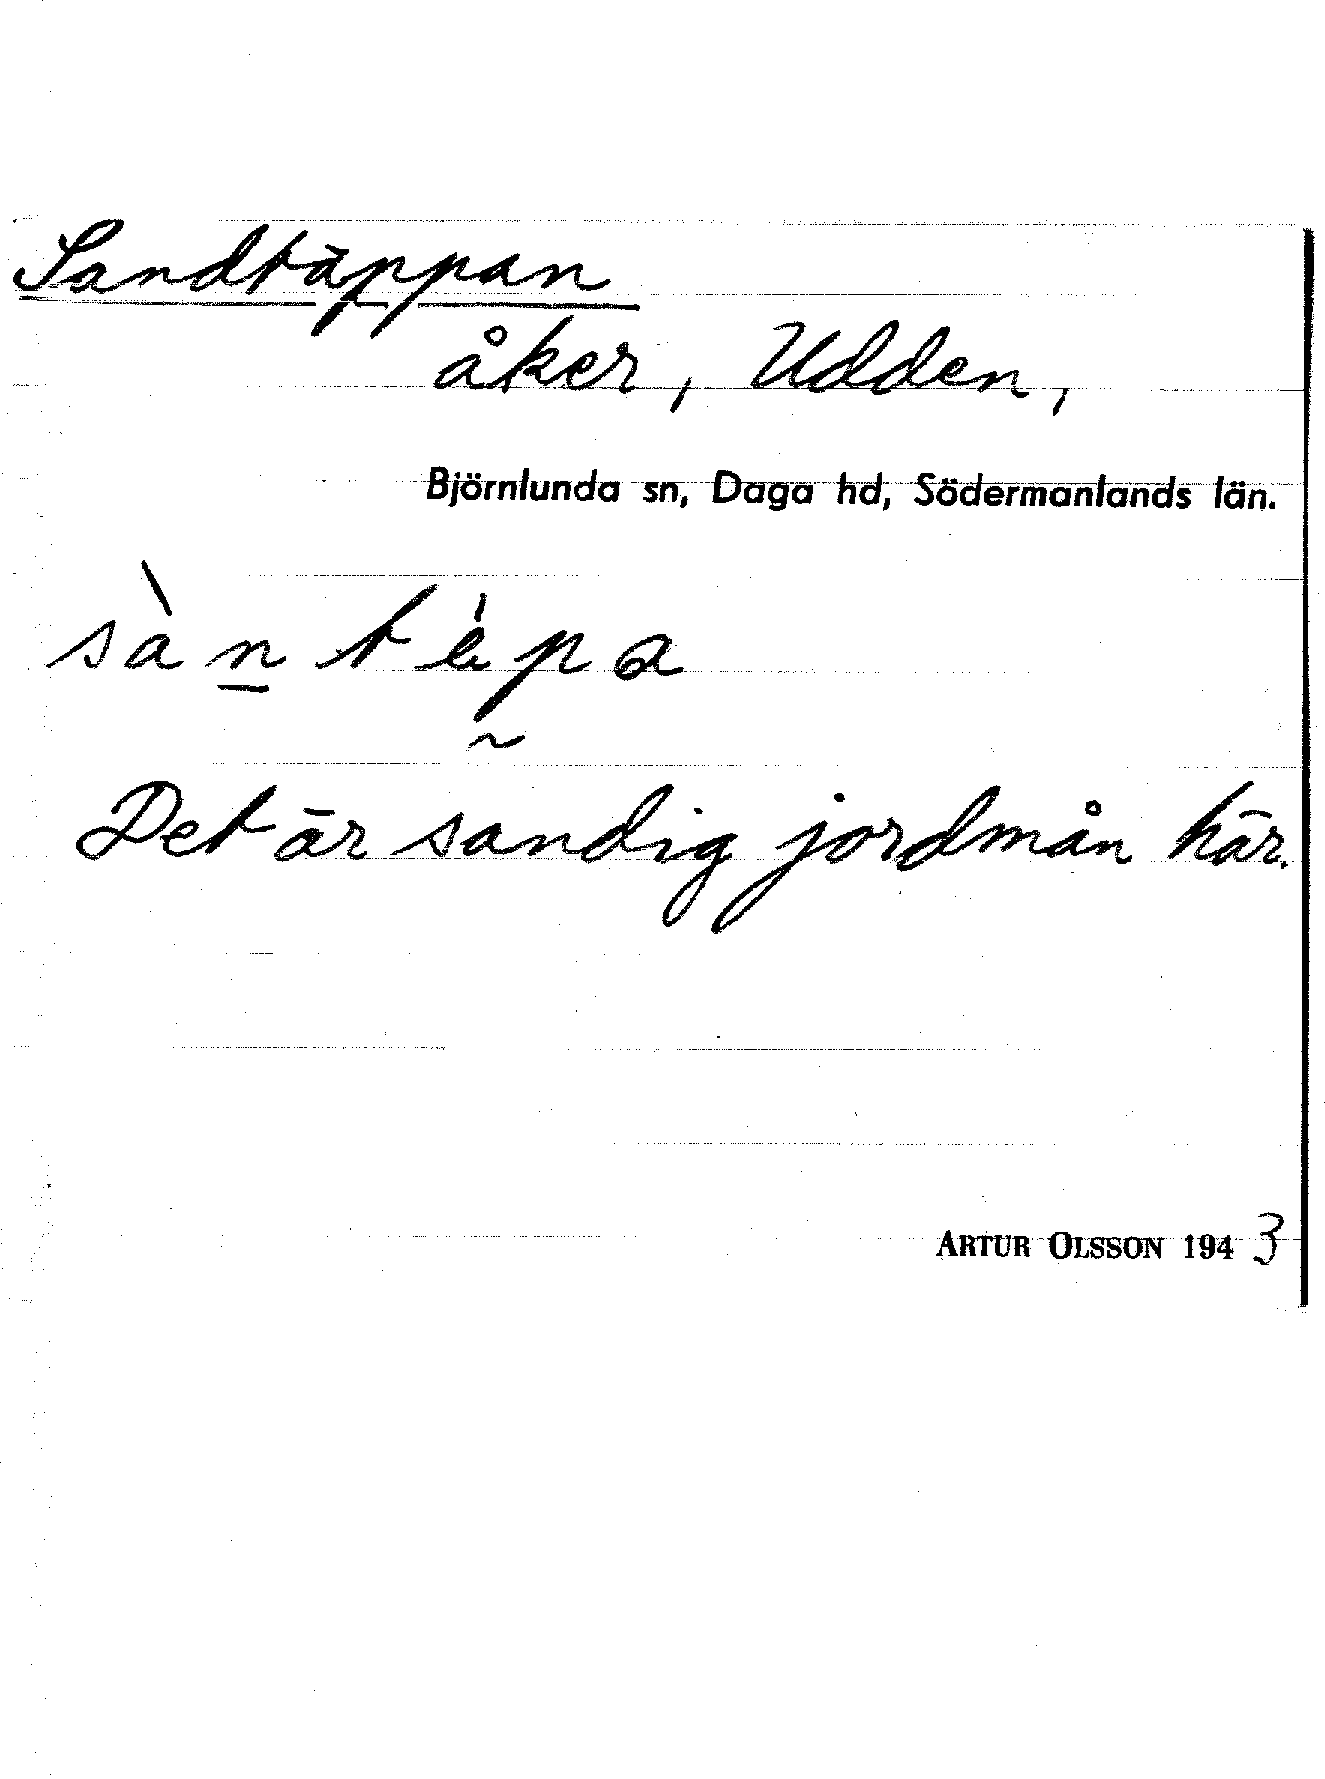 Sandtäppan
åker, Udden,
Björnlunda sn, Daga hd, Södermanlands län.
sàntépa
Det är sandig jordmån här.
ARTUR OLSSON 1943